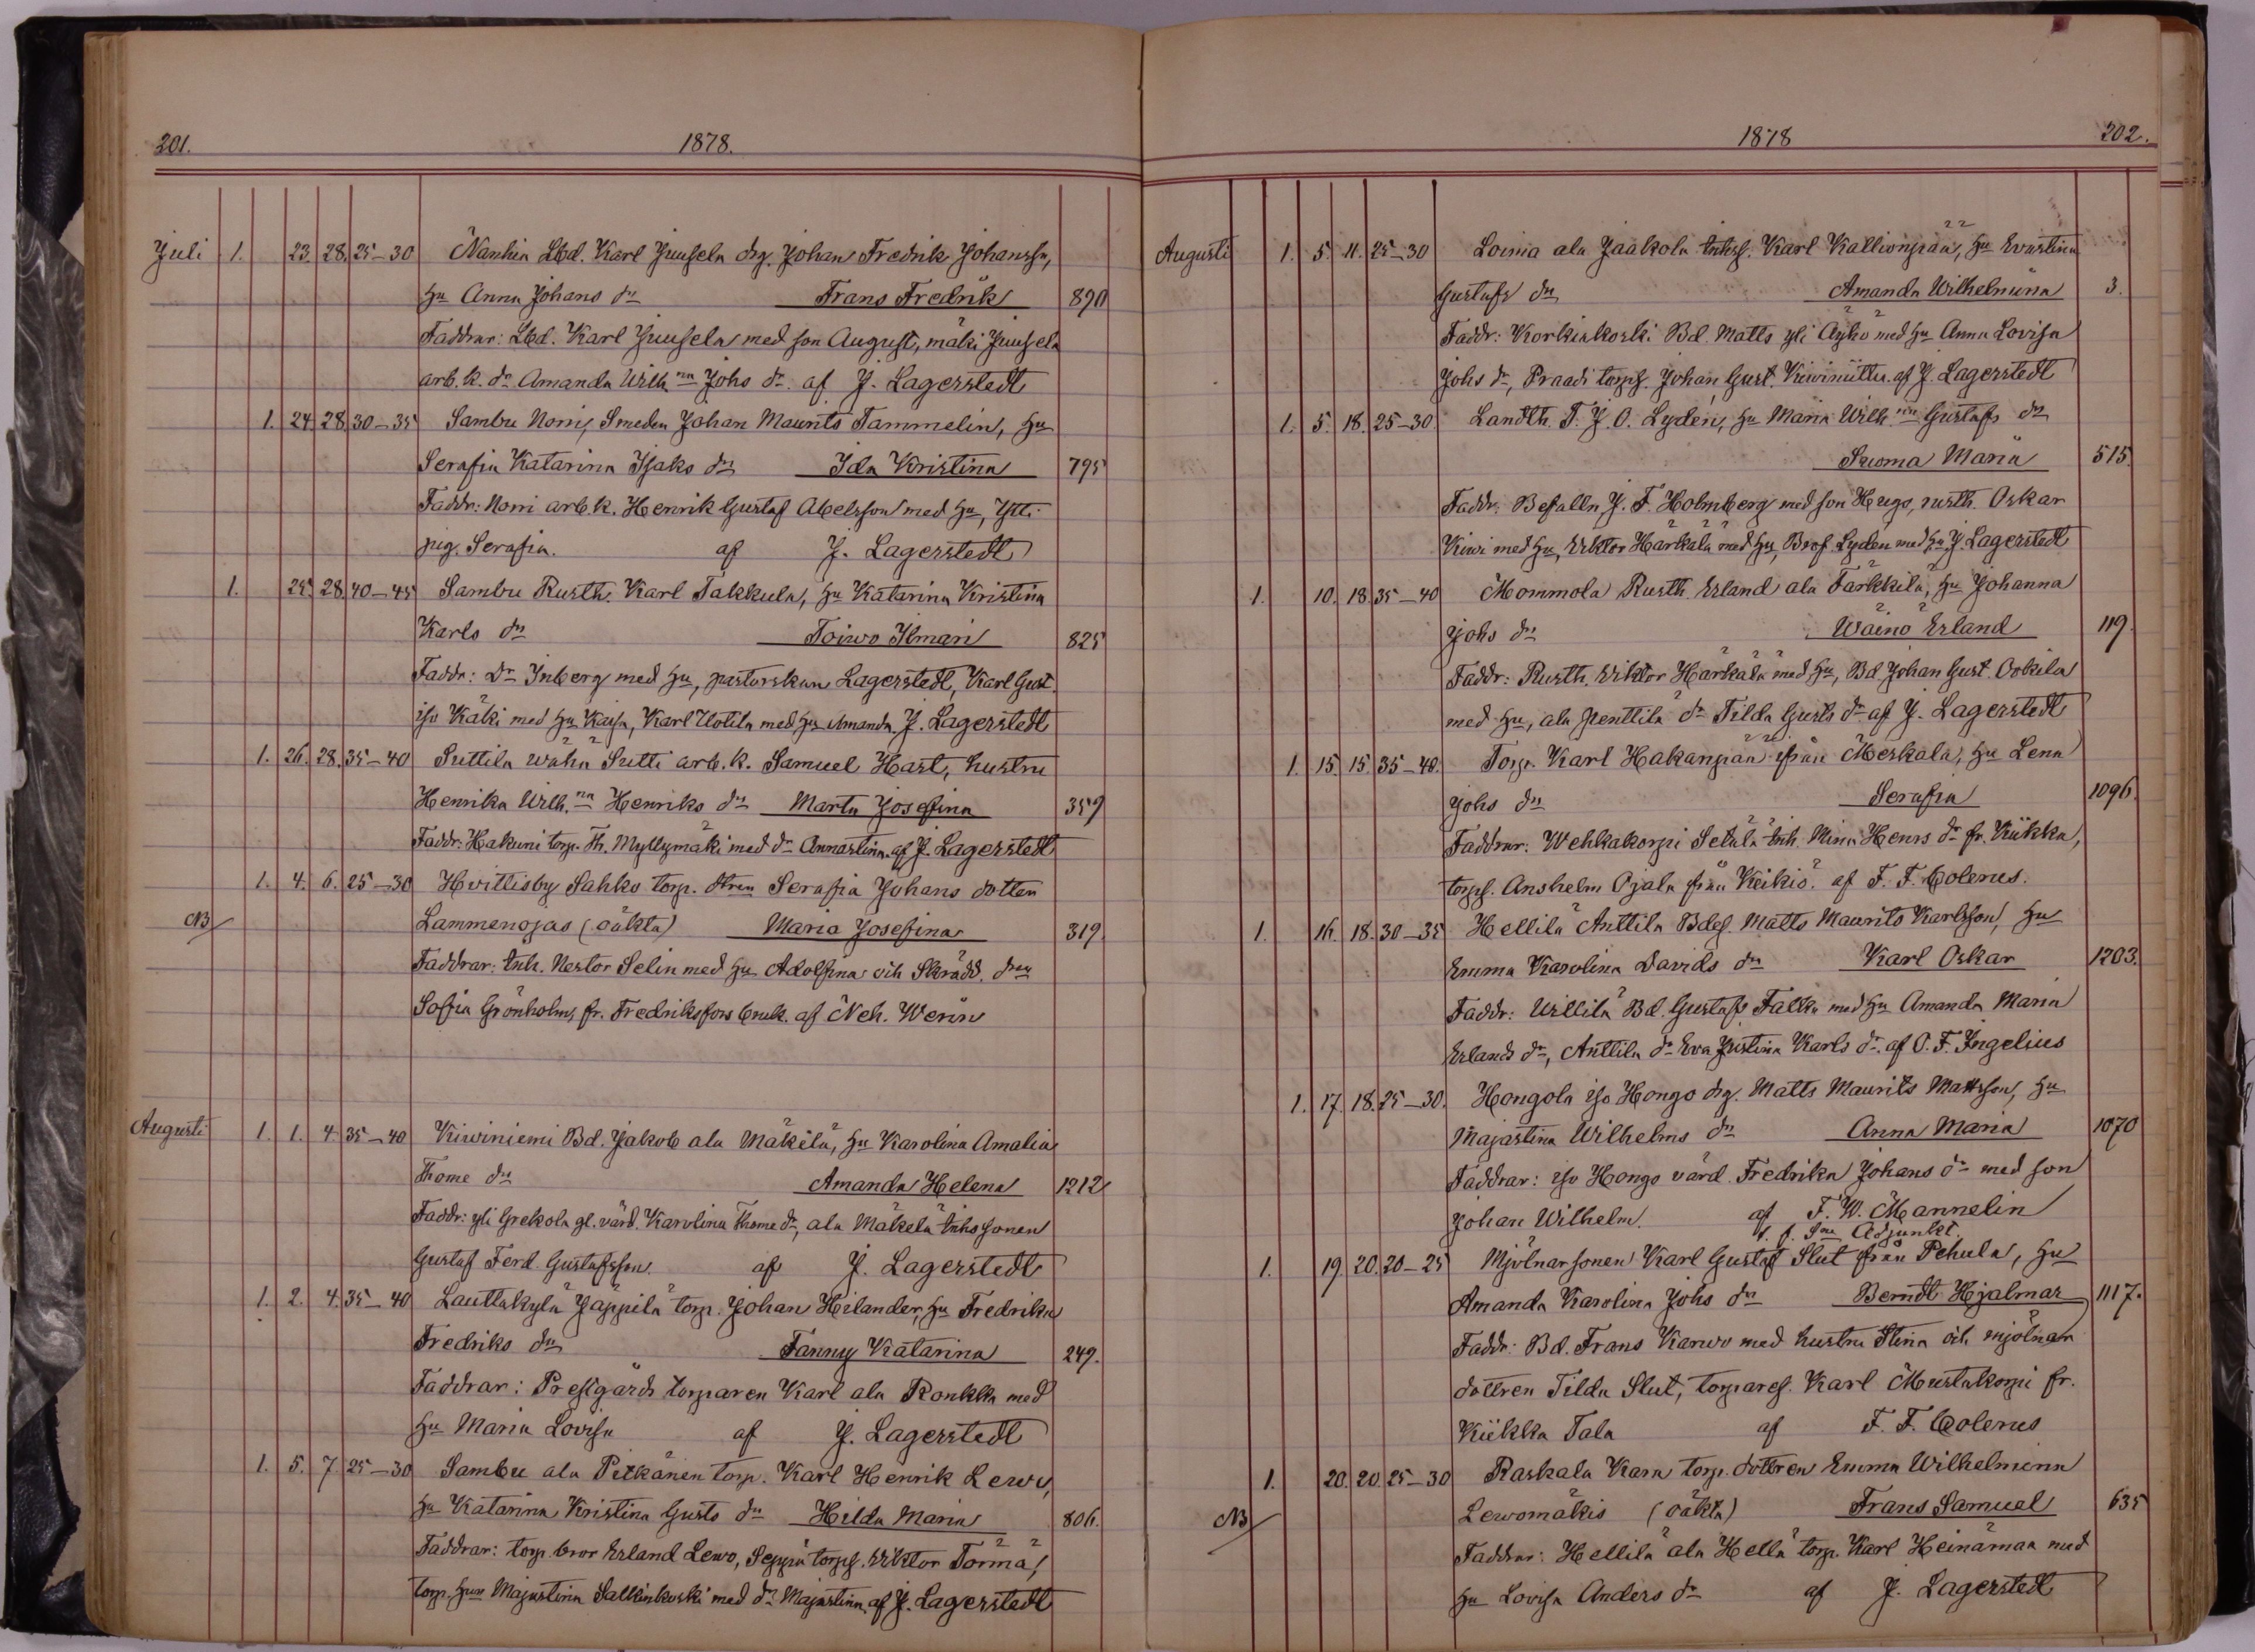 201. 1878.
Juli 1. 23. 28. 25–30 Nanhia Lbd. Karl Juusela drg. Johan Fredrik Johanssn,
hu Anna Johans dr Frans Fredrik 890
Faddrar: Lbd. Karl Juusela med son August, mäki Juusela
arb. k. dr Amanda Wilh.na Johs dr. af J. Lagerstedt
1. 24. 28. 30–35 Sambu Norri, Smeden Johan Maurits Tammelin, hu
Serafia Katarina Isaks dr Ida Kristina 795
Faddr: Norri arb. k. Henrik Gustaf Abelsson med hu, Ylli
pig. Serafia. af J. Lagerstedt
1. 25. 28. 40–45 Sambu Rusth. Karl Takkula, hu Katarina Kristina
Karls dr Toiwo Ilmari 825
Faddr: Dr Inberg med hu, pastorskan Lagerstedt, Karl Gust.
iso Käki med hu Kaisa, Karl Uotila med hu Amanda. J. Lagerstedt
1. 26. 28. 35–40 Suttila wähä Sutti arb. k. Samuel Hast, hustru
Henrika Wilh.na Henriks dr Marta Josefina 359
Faddr: Hakuni torp. Th. Myllymäki med dr Annastina. af J. Lagerstedt
1. 4. 6. 25–30 Hvittisby Sahko torp. dtren Serafia Johans dotter
NB Lammenojas (oäkta) Maria Josefina 319.
Faddrar: Inh. Nestor Selin med hu Adolfina och Skrädd. dren
Sofia Grönholm, fr. Fredriksfors bruk. af Neh. Werin
Augusti 1. 1. 4. 35–40 Kiwiniemi Bd. Jakob ala Mäkilä, hu Karolina Amalia
Thome dr Amanda Helena 1212
Faddr: yli Grekola gl. värd. Karolina Thome dr, ala Mäkelä Inhssonen
Gustaf Ferd. Gustafsson. af J. Lagerstedt
1. 2. 4. 35–40 Lauttakylä Jäppilä torp. Johan Heilander, hu Fredrika
Fredriks dr Fanny Katarina 249.
Faddrar: Prestgårds torparen Karl ala Ronkka med
hu Maria Lovisa af J. Lagerstedt
1. 5. 7. 25–30 Sambu ala Pitkänen torp. Karl Henrik Lewo,
hu Katarina Kristina Gusts dr Hilda Maria 806.
Faddrar: torp. bror Erland Lewo, Seppä torps. Viktor Törmä,
torp. hun Majastina Sallinkoski med dr Majastina. af J. Lagerstedt
1878 202.
Augusti 1. 5. 11. 25–30 Loima ala Jaakola Inhs. Karl Kallionpää, hu Evastina
Gustafs dr Amanda Wilhelmina 3.
Faddr: Korkiakoski Bd. Matts yli Äyhö med hu Anna Lovisa
Johs dr, Praadi torps. Johan Gust. Kiwiniittu. af J. Lagerstedt
1. 5. 18. 25–30 Landth. T. J. O. Lydén, hu Maria Wilh.na Gustafs dr
Suoma Maria 515.
Faddr. Befalln. J. F. Holmberg med son Hugo, rusth. Oskar
Kiwi med hu, Viktor Härkälä med hu, Brof. Lyden med hu J. Lagerstedt
1. 10. 18. 35–40 Mommola Rusth. Erland ala Tarkkila, hu Johanna
Johs dr Wäinö Erland 119.
Faddr: Rusth. Viktor Härkälä med hu, Bd. Johan Gust. Ookila
med hu, ala Penttilä dr Tilda Gusts dr af J. Lagerstedt
1. 15. 15. 35–40. Torp. Karl Hakanpää från Meskala, hu Lena
Johs dr Serafia 1096.
Faddrar: Wehkakorpi Setälä Inh. Mina Henrs dr fr. Kiikka,
torps. Anshelm Ojala från Keikiö. af F. F. Colerus.
1. 16. 18. 30–35 Hellilä Anttila Bdes. Matts Maurits Karlsson, hu
Emma Karolina Davids dr Karl Oskar 1203.
Faddr: Willilä Bd. Gustaf Falkk med hu Amanda Maria
Erlands dr, Anttila dr Eva Justina Karls dr. af O. F. Ingelius
1. 17. 18. 25–30. Hongola iso Hongo drg. Matts Maurits Mattsson, hu
Majastina Wilhelms dr Anna Maria 1070
Faddrar: iso Hongo värd. Fredrika Johans dr med son
Johan Wilhelm. af F. W. Mannelin
Adjunkt.
1. 19. 20. 20–25 Mjölnarsonen Karl Gustaf Slut från Pehula, hu
Amanda Karolina Johs dr Berndt Hjalmar 1117.
Faddr: Bd. Frans Karwo med hustru Stina och mjölnar
dottren Tilda Slut, torpares. Karl Mustakorpi fr.
Kiikka Tala af F. F. Colerus
1. 20. 20. 25–30 Raskala Kara torp. dottren Emma Wilhelmina
NB Lewomäkis (oäkta) Frans Samuel 635
Faddrar: Hellilä ala Hellä torp. Karl Heinämaa med
hu Lovisa Anders dr af J. Lagerstedt